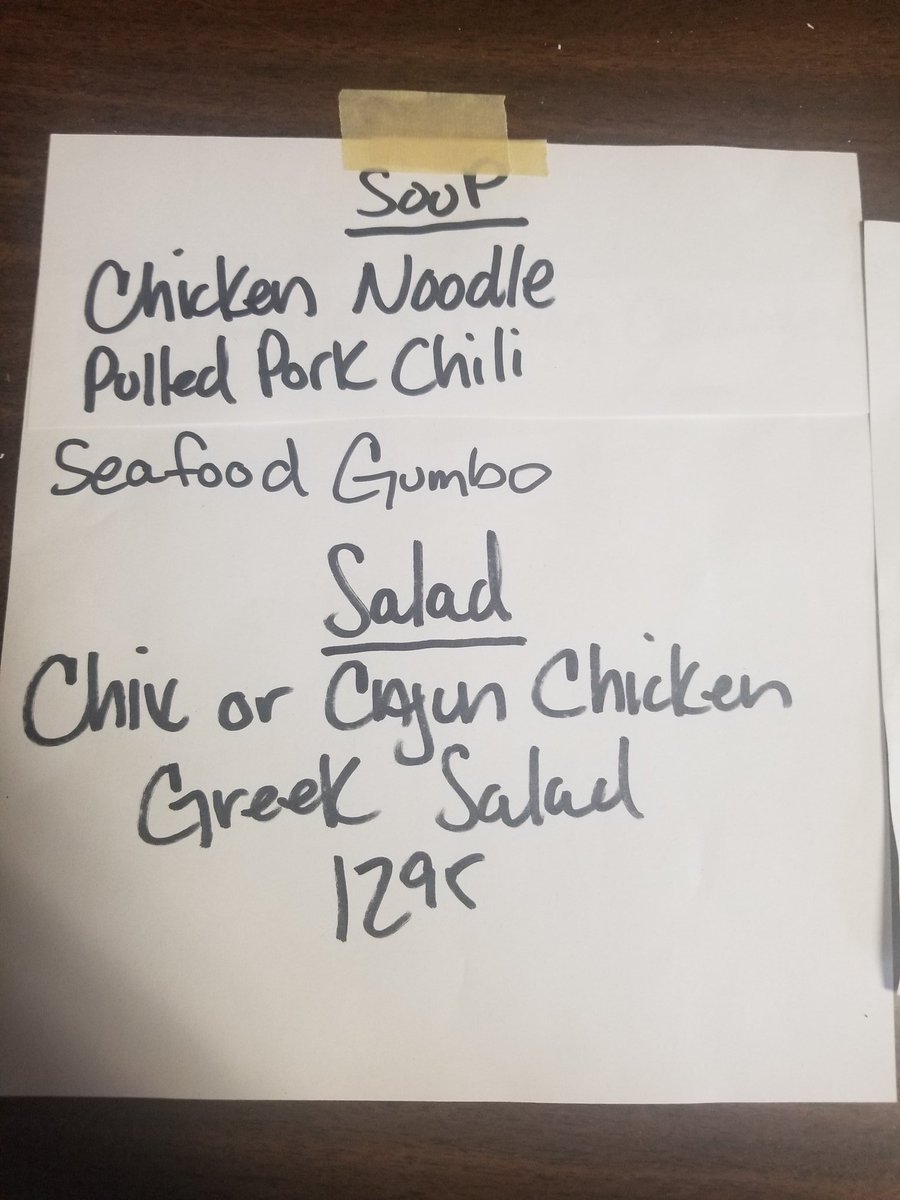 SOUP
Chicken Noodle
Pulled Pork Chili
Seafood Gumbo
Salad
Chik or Cajun Chicken
Greek Salad
1295